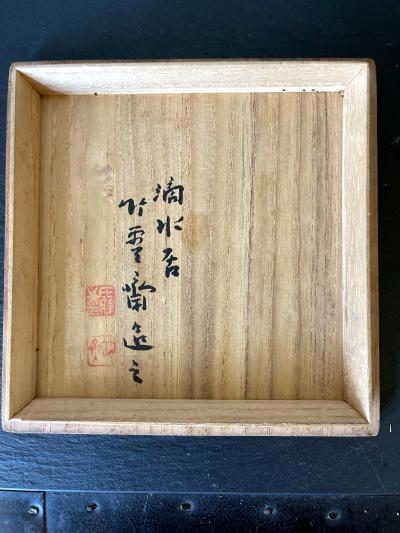 滴水居
竹雲齋造之